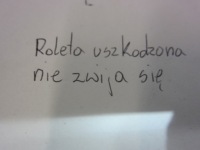 Roleta uszkodzona
nie zwija się